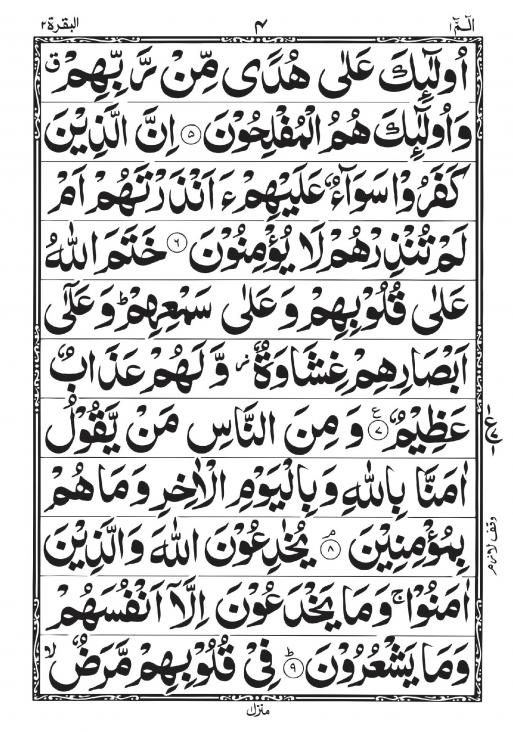 الٓمّٓ ۱ ۴ البقرة ۲
اُولٰٓئِكَ عَلٰى هُدًى مِّنْ رَّبِّهِمْ ۗ
وَاُولٰٓئِكَ هُمُ الْمُفْلِحُوْنَ ۵ اِنَّ الَّذِيْنَ
كَفَرُوْا سَوَآءٌ عَلَيْهِمْ ءَاَنْذَرْتَهُمْ اَمْ
لَمْ تُنْذِرْهُمْ لَا يُؤْمِنُوْنَ ۶ خَتَمَ اللّٰهُ
عَلٰى قُلُوْبِهِمْ وَعَلٰى سَمْعِهِمْ ؕ وَعَلٰٓى
اَبْصَارِهِمْ غِشَاوَةٌ ز وَّلَهُمْ عَذَابٌ
عَظِيْمٌ ۷ ع وَمِنَ النَّاسِ مَنْ يَّقُوْلُ
اٰمَنَّا بِاللّٰهِ وَبِالْيَوْمِ الْاٰخِرِ وَمَا هُمْ
بِمُؤْمِنِيْنَ ۘ ۸ يُخٰدِعُوْنَ اللّٰهَ وَالَّذِيْنَ
وقف لازم
اٰمَنُوْا ۚ وَمَا يَخْدَعُوْنَ اِلَّآ اَنْفُسَهُمْ
وَمَا يَشْعُرُوْنَ ؕ ۹ فِيْ قُلُوْبِهِمْ مَّرَضٌ ۙ
منزل